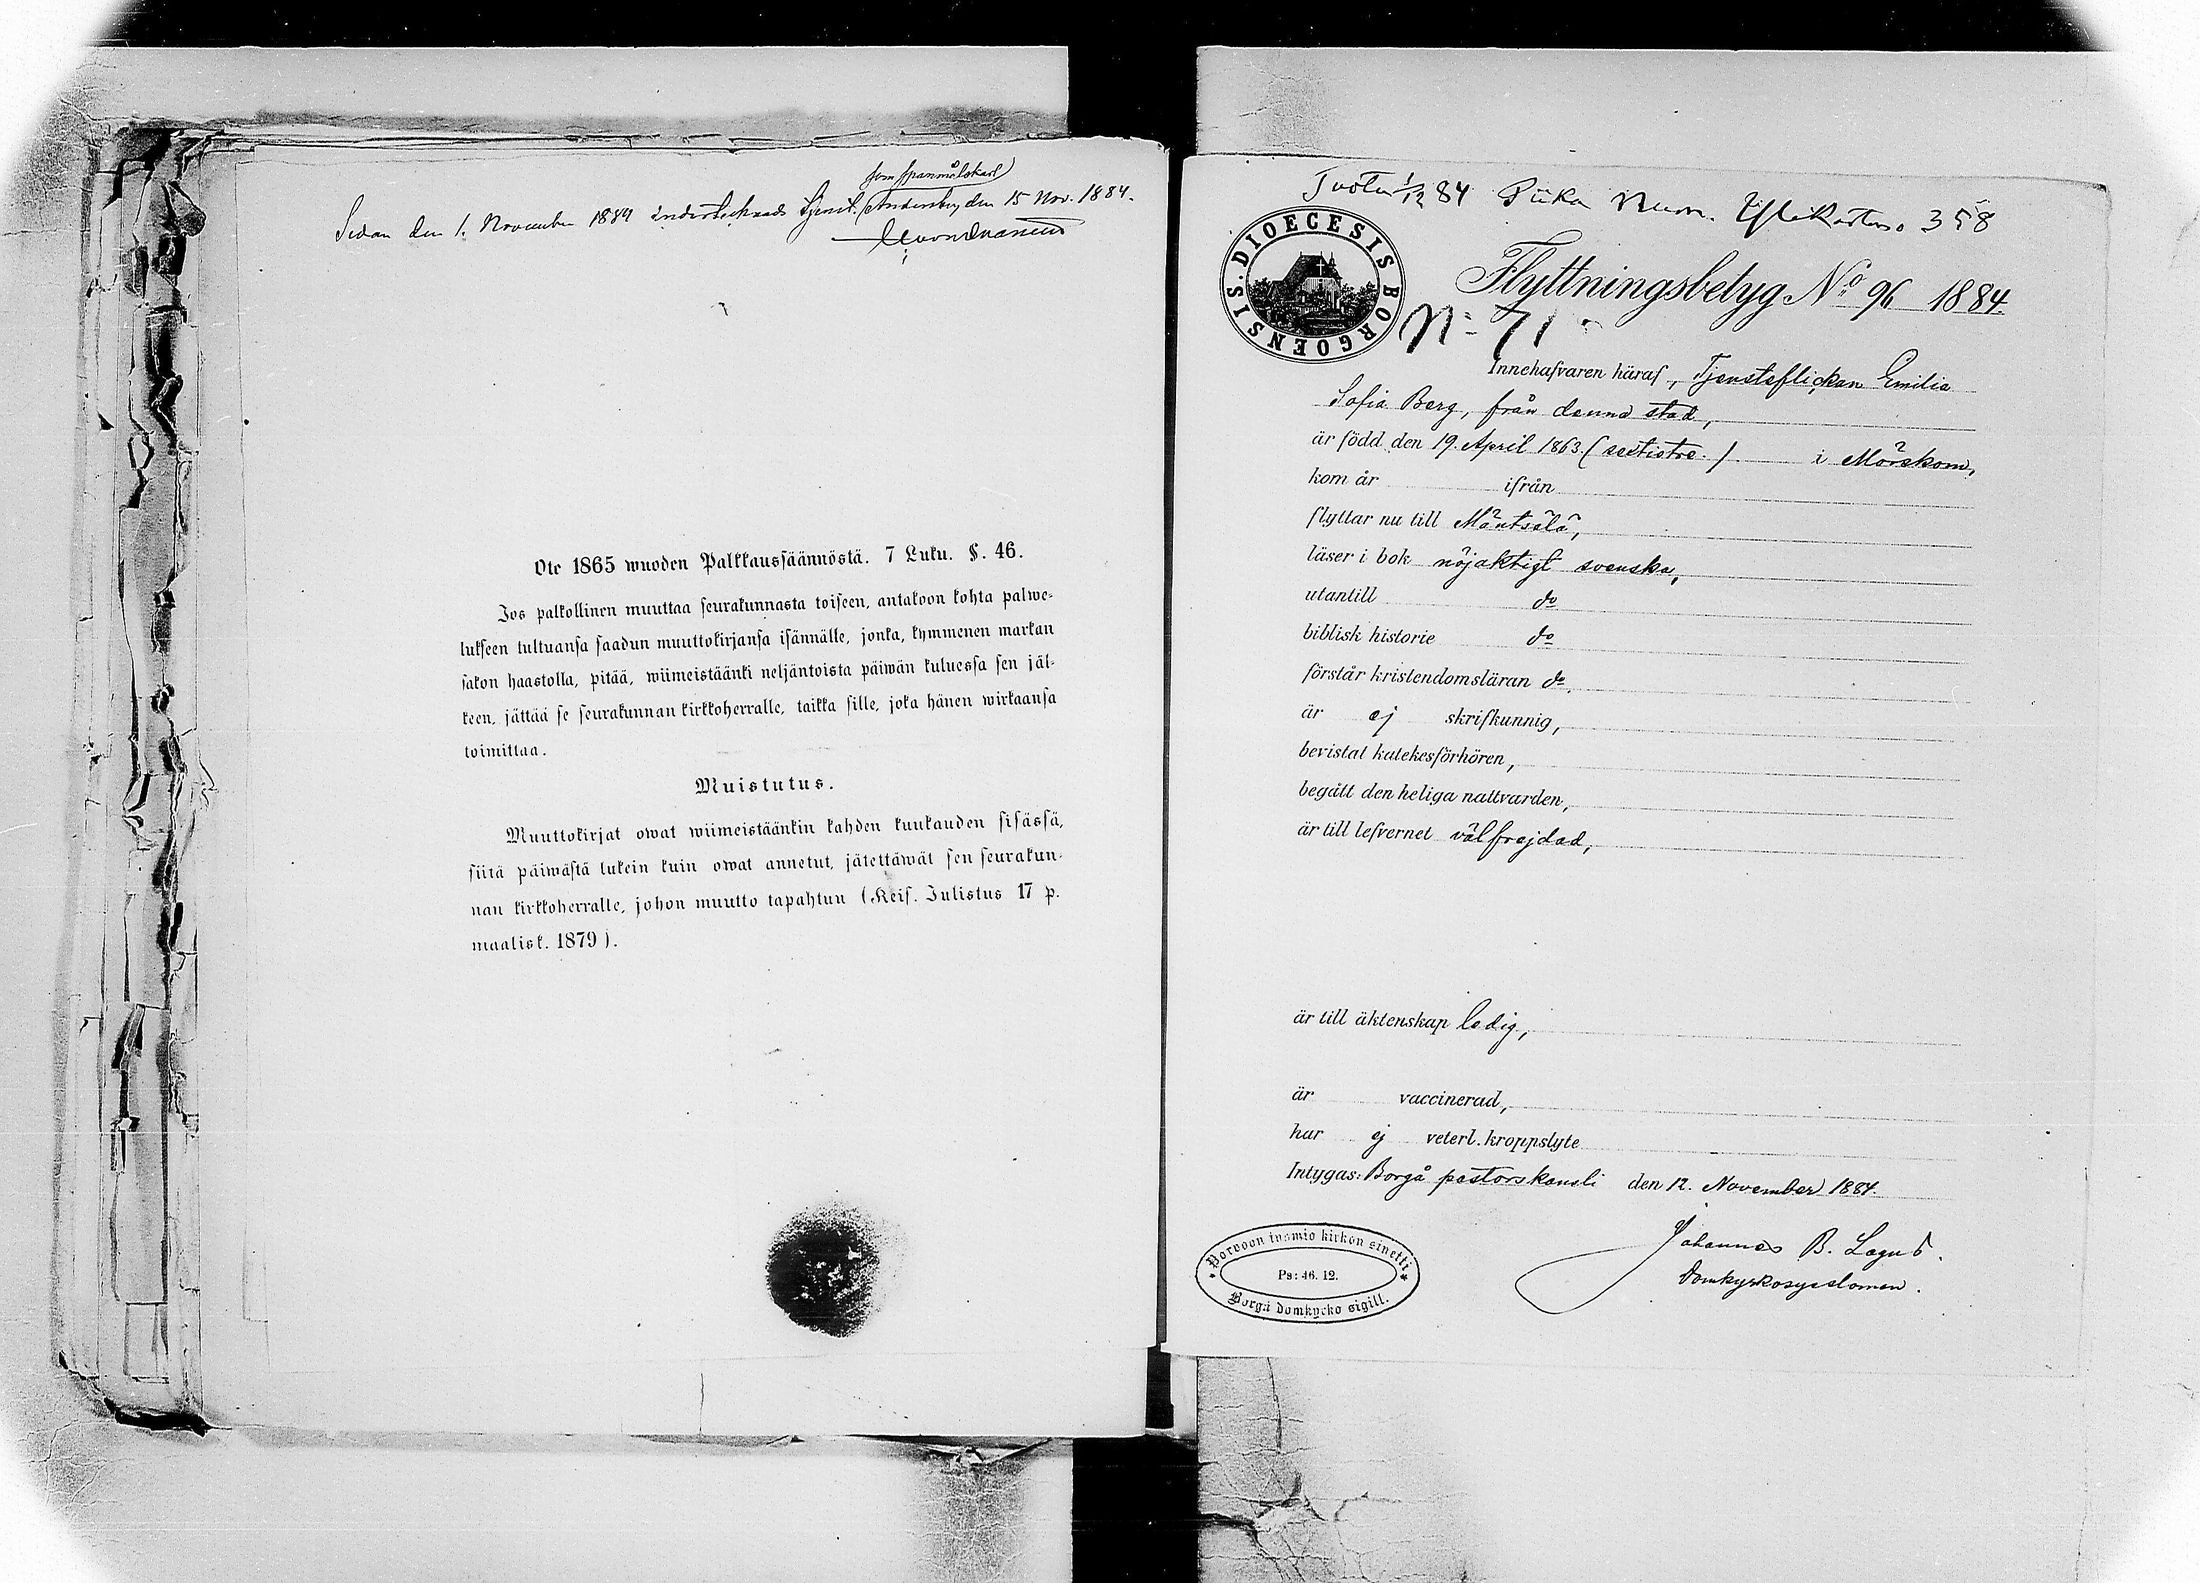 Sedan den 1. November 1884 undertecknads tjenst. den 15 Nov. 1884.
Ote 1865 wuoden Palkkaussäännöstä. 7 Luku. §. 46.
Jos palkollinen muuttaa seurakunnasta toiseen, antakoon kohta palwe-
lukseen tultuansa saadun muuttokirjansa isännälle, jonka, kymmenen markan
sakon haastolla, pitää, wiimeistäänki neljäntoista päiwän kuluessa sen jäl-
keen, jättää se seurakunnan kirkkoherralle, taikka sille, joka hänen wirkaansa
toimittaa.
Muistutus.
Muuttokirjat owat wiimeistäänkin kahden kuukauden sisässä,
siitä päiwästä lukein kuin owat annetut, jätettäwät sen seurakun-
nan kirkkoherralle, johon muutto tapahtun (Keis. Julistus 17 p.
maalisk. 1879).
Tuotu 1/12 84 Piika Num. 358
SIS. DIOECESIS BORGOENSIS
Flyttningsbetyg No 96 1884.
N= 71
Innehafvaren häraf, Tjensteflickan Emilia
Sofia Berg, från denna stad,
är född den 19. April 1863. i Mörskom,
kom år ifrån
flyttar nu till Mäntsälä,
läser i bok nöjaktigt svenska,
utantill do
biblisk historie do
förstår kristendomsläran do.
är ej skrifkunnig,
bevistat katekesförhören,
begått den heliga nattvarden,
är till lefvernet välfrejdad,
är till äktenskap ledig,
är vaccinerad,
har ej veterl. kroppslyte
Intygas: Borgå pastorskansli den 12. November 1884.
Johannes B. Lagus.
Domkyrkosyssloman.
Porvoon tuomio kirkon sinetti
Ps: 46. 12.
Borgå domkyrko sigill.